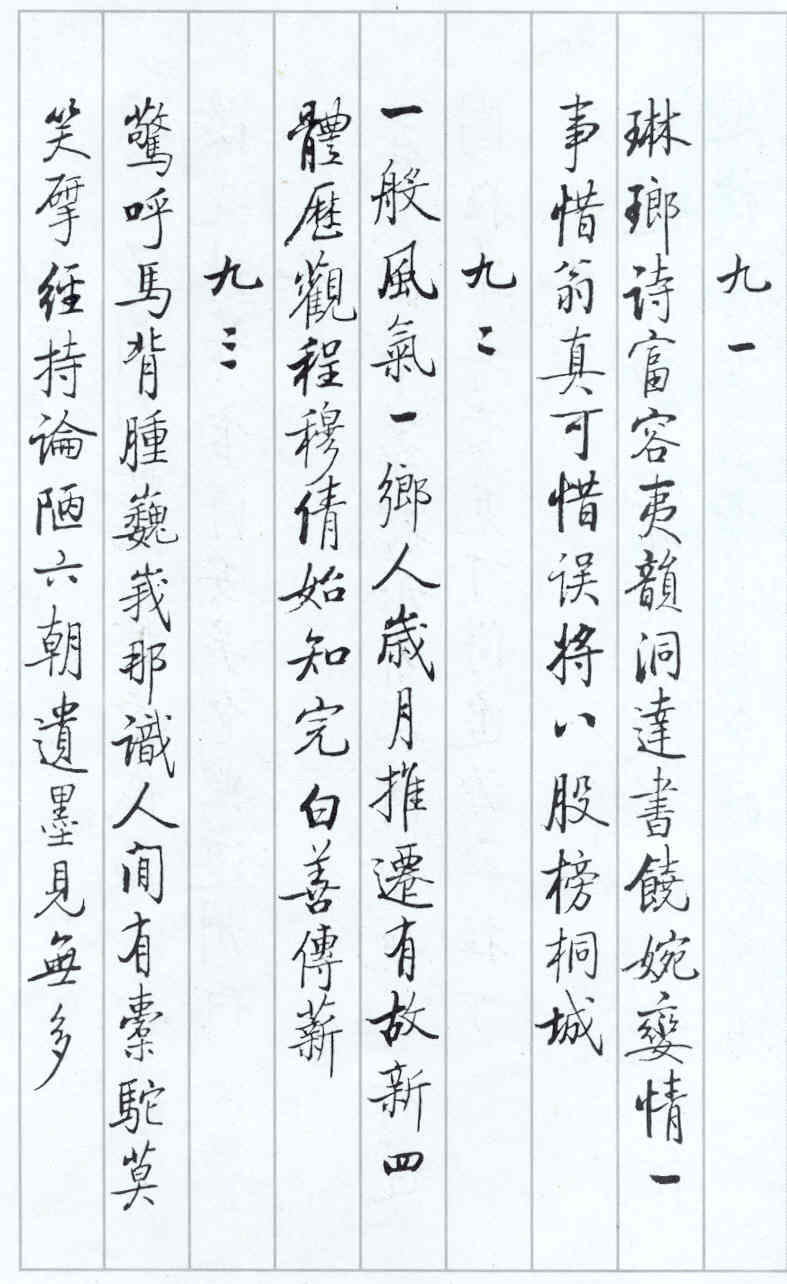 九一
琳瑯诗富容夷韻洞達書饒婉孌情一
事惜翁真可惜误将八股榜桐城
九二
一般風氣一鄉人歲月推遷有故新四
體歷觀程穆倩始知完白善傳薪
九三
驚呼馬背腫巍峩那識人间有橐駝莫
笑揅經持論陋六朝遺墨見無多